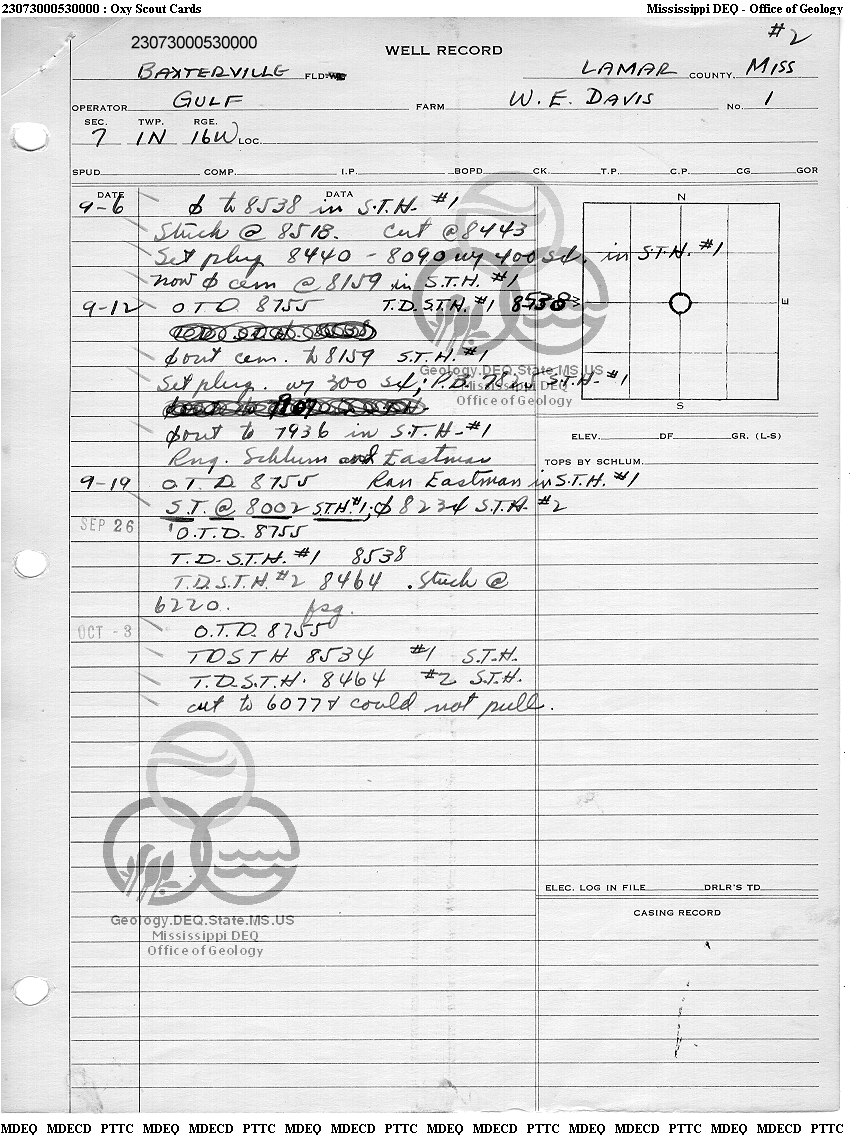 23073000530000 : Oxy Scout Cards Mississippi DEQ - Office of Geology
#2
23073000530000
WELL RECORD
BAXTERVILLE FLD. LAMAR COUNTY, MISS
OPERATOR GULF FARM W. E. DAVIS NO. 1
SEC. TWP. RGE.
7 1N 16W LOC.
SPUD COMP. I.P. BOPD CK. T.P. C.P. CG GOR
DATE DATA
9-6 ϕ to 8538 in S.T.H. #1
Stuck @ 8518. Cut @ 8443
Set plug 8440 - 8090 w/ 400 sx. in S.T.H. #1
now ϕ cem @ 8159 in S.T.H. #1
9-12 O.T.D. 8755 T.D. S.T.H. #1 8538
ϕ out cem. to 8159 S.T.H. #1
Set plug. w/ 300 sx; P.B. S.T.H. #1
ϕ out to 7936 in S.T.H. #1
Rng. Schlum and Eastman
9-19 O.T.D. 8755 Ran Eastman in S.T.H. #1
S.T. @ 8002 STH. #1; ϕ 8234 S.T.H. #2
SEP 26 O.T.D. 8755
T.D. S.T.H. #1 8538
T.D. S.T.H. #2 8464 . Stuck @
6220. fsg.
OCT -3 O.T.D. 8755
TDSTH 8534 #1 S.T.H.
T.D.S.T.H. 8464 #2 S.T.H.
cut to 6077 & could not pull.
N
E
S
ELEV. DF. GR. (L-S)
TOPS BY SCHLUM.
ELEC. LOG IN FILE DRLR'S TD
CASING RECORD
Geology.DEQ.State.MS.US
Mississippi DEQ
Office of Geology
Geology.DEQ.State.MS.US
Mississippi DEQ
Office of Geology
MDEQ MDECD PTTC MDEQ MDECD PTTC MDEQ MDECD PTTC MDEQ MDECD PTTC MDEQ MDECD PTTC MDEQ MDECD PTTC